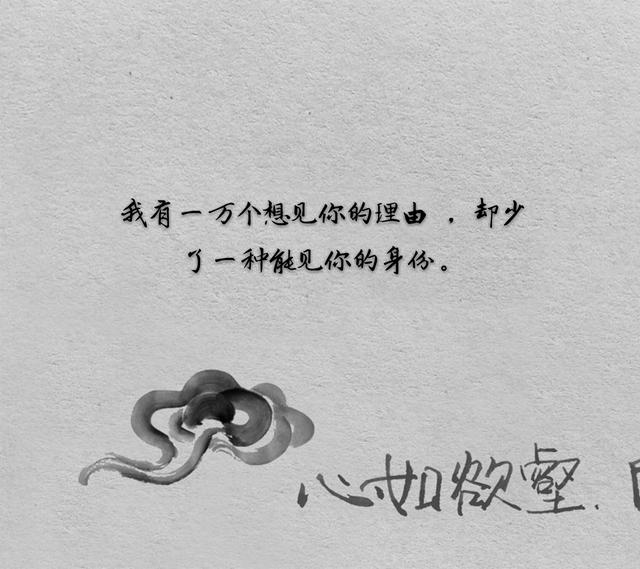 我有一万个想见你的理由 ，却少
了一种能见你的身份。
心如欲壑.